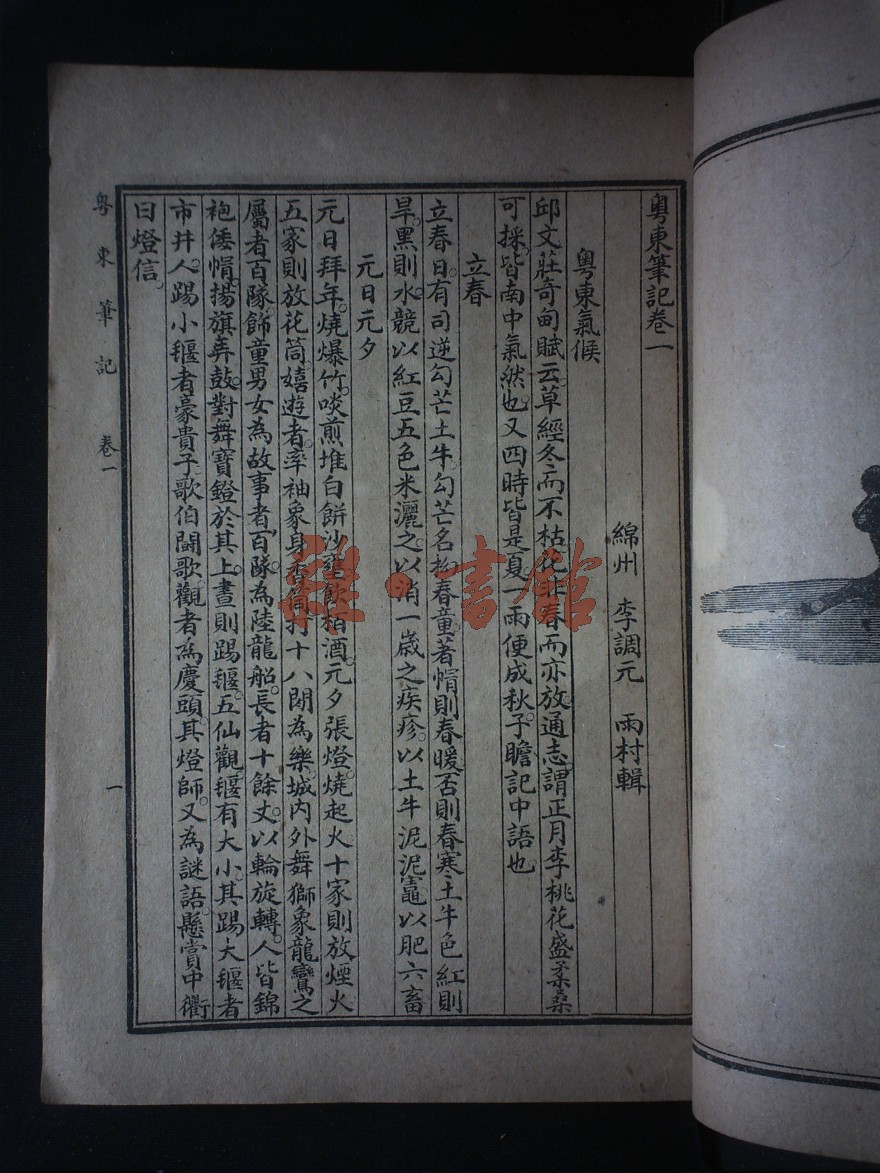 粵東筆記卷一
綿州 李調元 雨村輯
粵東氣候
邱文莊奇甸賦云。草經冬而不枯。花非春而亦放。通志。謂正月李桃花盛。柔桑
可採。皆南中氣然也。又四時皆是夏。一雨便成秋。子瞻記中語也。
立春
立春日。有司逆勾芒土牛。勾芒名拘春童。著帽則春暖。否則春寒。土牛色紅則
旱。黑則水。競以紅豆五色米灑之。以消一歲之疾疹。以土牛泥泥竈。以肥六畜
元日元夕
元日拜年。燒爆竹。啖煎堆白餅沙壅。飲栢酒。元夕張燈燒起火。十家則放煙火
五家則放花筒。嬉遊者。率袖象身香筒。打十八閗為樂。城內外舞獅象龍鸞之
屬者百隊。飾童男女為故事者百隊。為陸龍船。長者十餘丈。以輪旋轉。人皆錦
袍倭帽。揚旗弄鼓。對舞寶鐙於其上。晝則踢䭥。五仙觀。䭥有大小。其踢大䭥者
市井人。踢小䭥者豪貴子。歌伯鬪歌。觀者為慶頭。其燈師。又為謎語。懸賞中衢
曰燈信。
粵東筆記 卷一 一
雜·書館